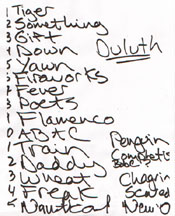 1 Tiger
2 Something
3 Gift
4 Down
5 Yawn
6 Fireworks
7 Fever
8 Poets
9 Flamenco
0 ABAC
1 Train
2 Daddy
3 Wheat
4 Freak
5 Nautical
Duluth
Penguin
Babel
Chagrin
Scented